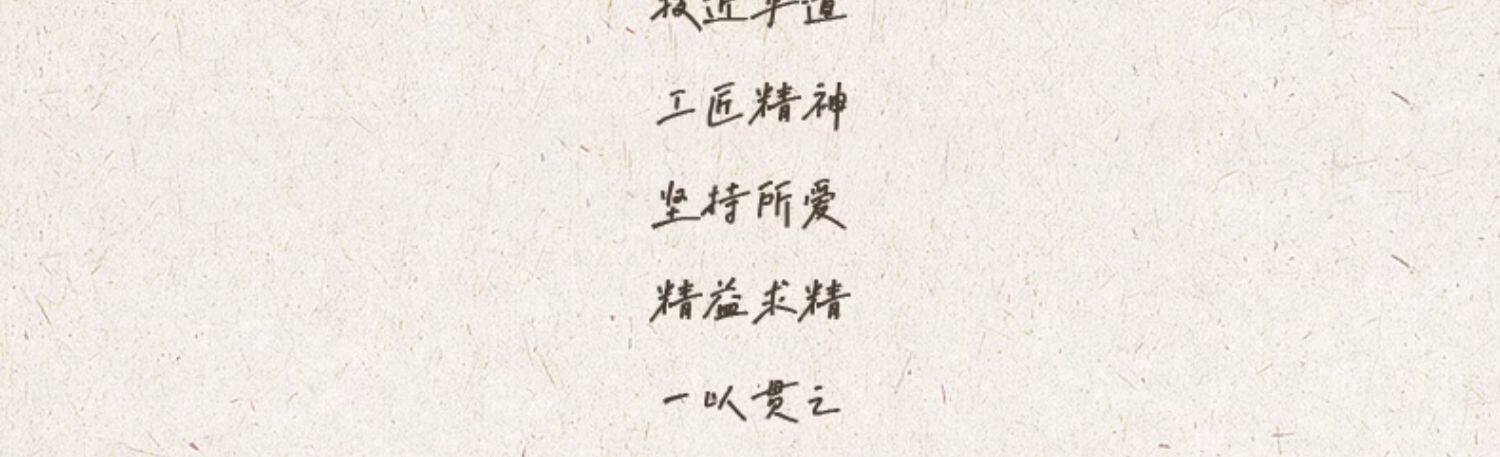 技近乎道
工匠精神
坚持所爱
精益求精
一以贯之